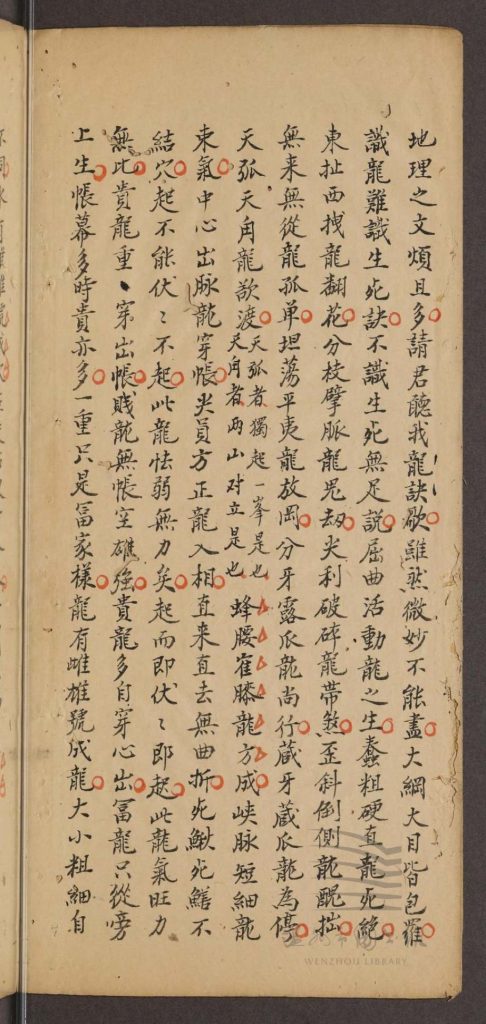 地理之文煩且多請君聽我龍訣歌雖然微妙不能盡大綱大目皆包羅
識龍難識生死訣不識生死無足說屈曲活動龍之生蠢粗硬直龍死絕
東扯西拽龍翻花分枝擘脈龍鬼刼尖利破碎龍帶煞歪斜倒側龍醜拙
無来無從龍孤单坦蕩平夷龍放岡分牙露爪龍尚行蔵牙蔵爪龍為停
天弧天角龍欲渡天弧者獨起一峯是也天角者两山对立是也蜂腰隺膝龍方成峽脉短細龍
束氣中心出脉龍穿帳尖員方正龍入相直来直去無曲折死鰍死鱔不
結穴起不能伏〻不起此龍怯弱無力矣起而即伏〻即起此龍氣旺力
無比貴龍重〻穿出帳賤龍無帳空雄強貴龍多自穿心出冨龍只從旁
上生帳幕多時貴亦多一重只是冨家樣龍有雌雄號成龍大小粗細自
WENZHOU LIBRARY